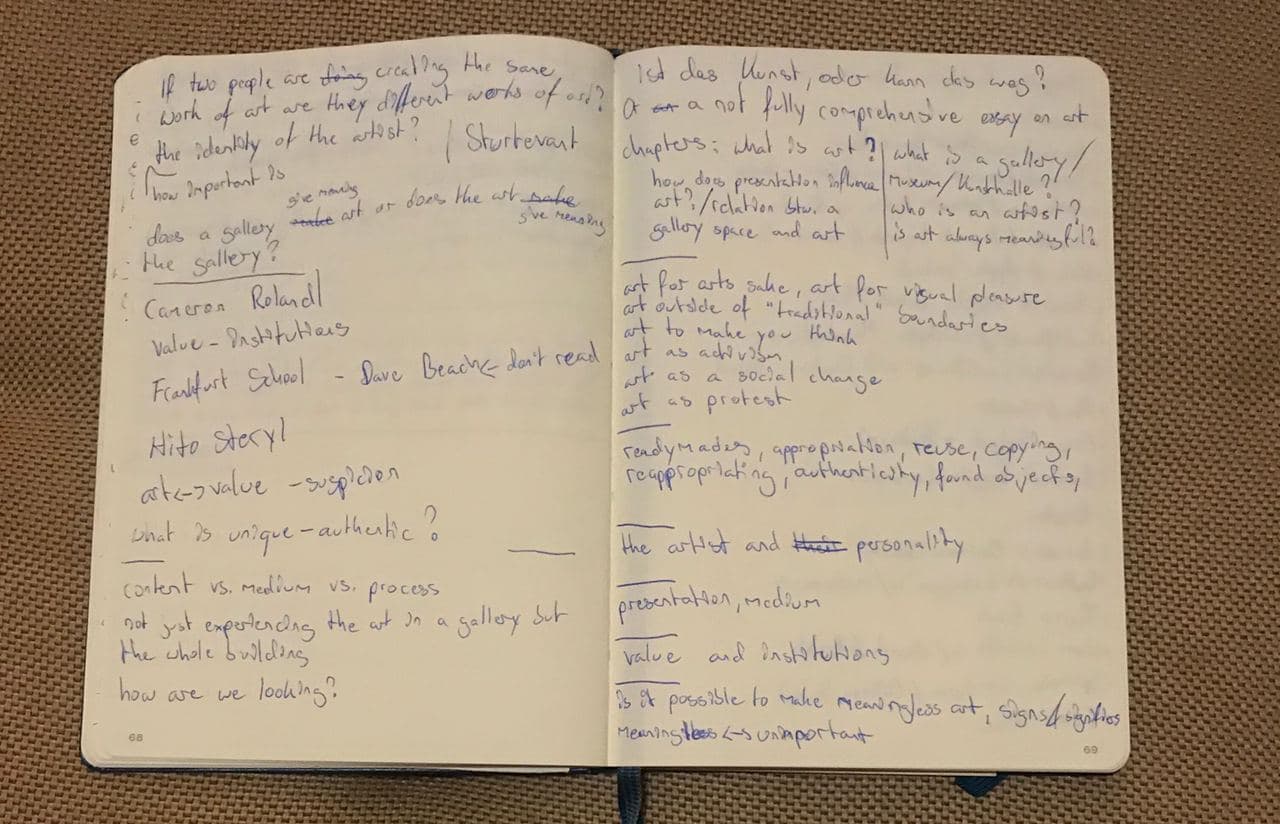 If two people are doing creating the same
work of art are they different works of art?
the identity of the artist? / Sturtevant
how important is
give meaning
does a gallery make art or does the art make
give meaning
the gallery?
Cameron Rolandl
Value - Institutions
Frankfurt School - Dave Beach <- don't read
Hito Steryl
art <-> value - suspicion
what is unique - authentic?
content vs. medium vs. process
not just experiencing the art in a gallery but
the whole building
how are we looking?
68
Ist das Kunst, oder kann das weg?
Or an a not fully comprehensive essay on art
chapters: what is art? | what is a gallery/
how does presentation influence | Museum/Kunsthalle?
art?/relation btw. a | who is an artist?
gallery space and art | is art always meaningful?
art for arts sake, art for visual pleasure
art outside of "traditional" boundaries
art to make you think
art as activism
art as a social change
art as protest
readymades, appropriation, reuse, copying,
reappropriating, authenticity, found objects,
the artist and their personality
presentation, medium
value and institutions
is it possible to make meaningless art, signs/signifies
meaningless <-> unimportant
69